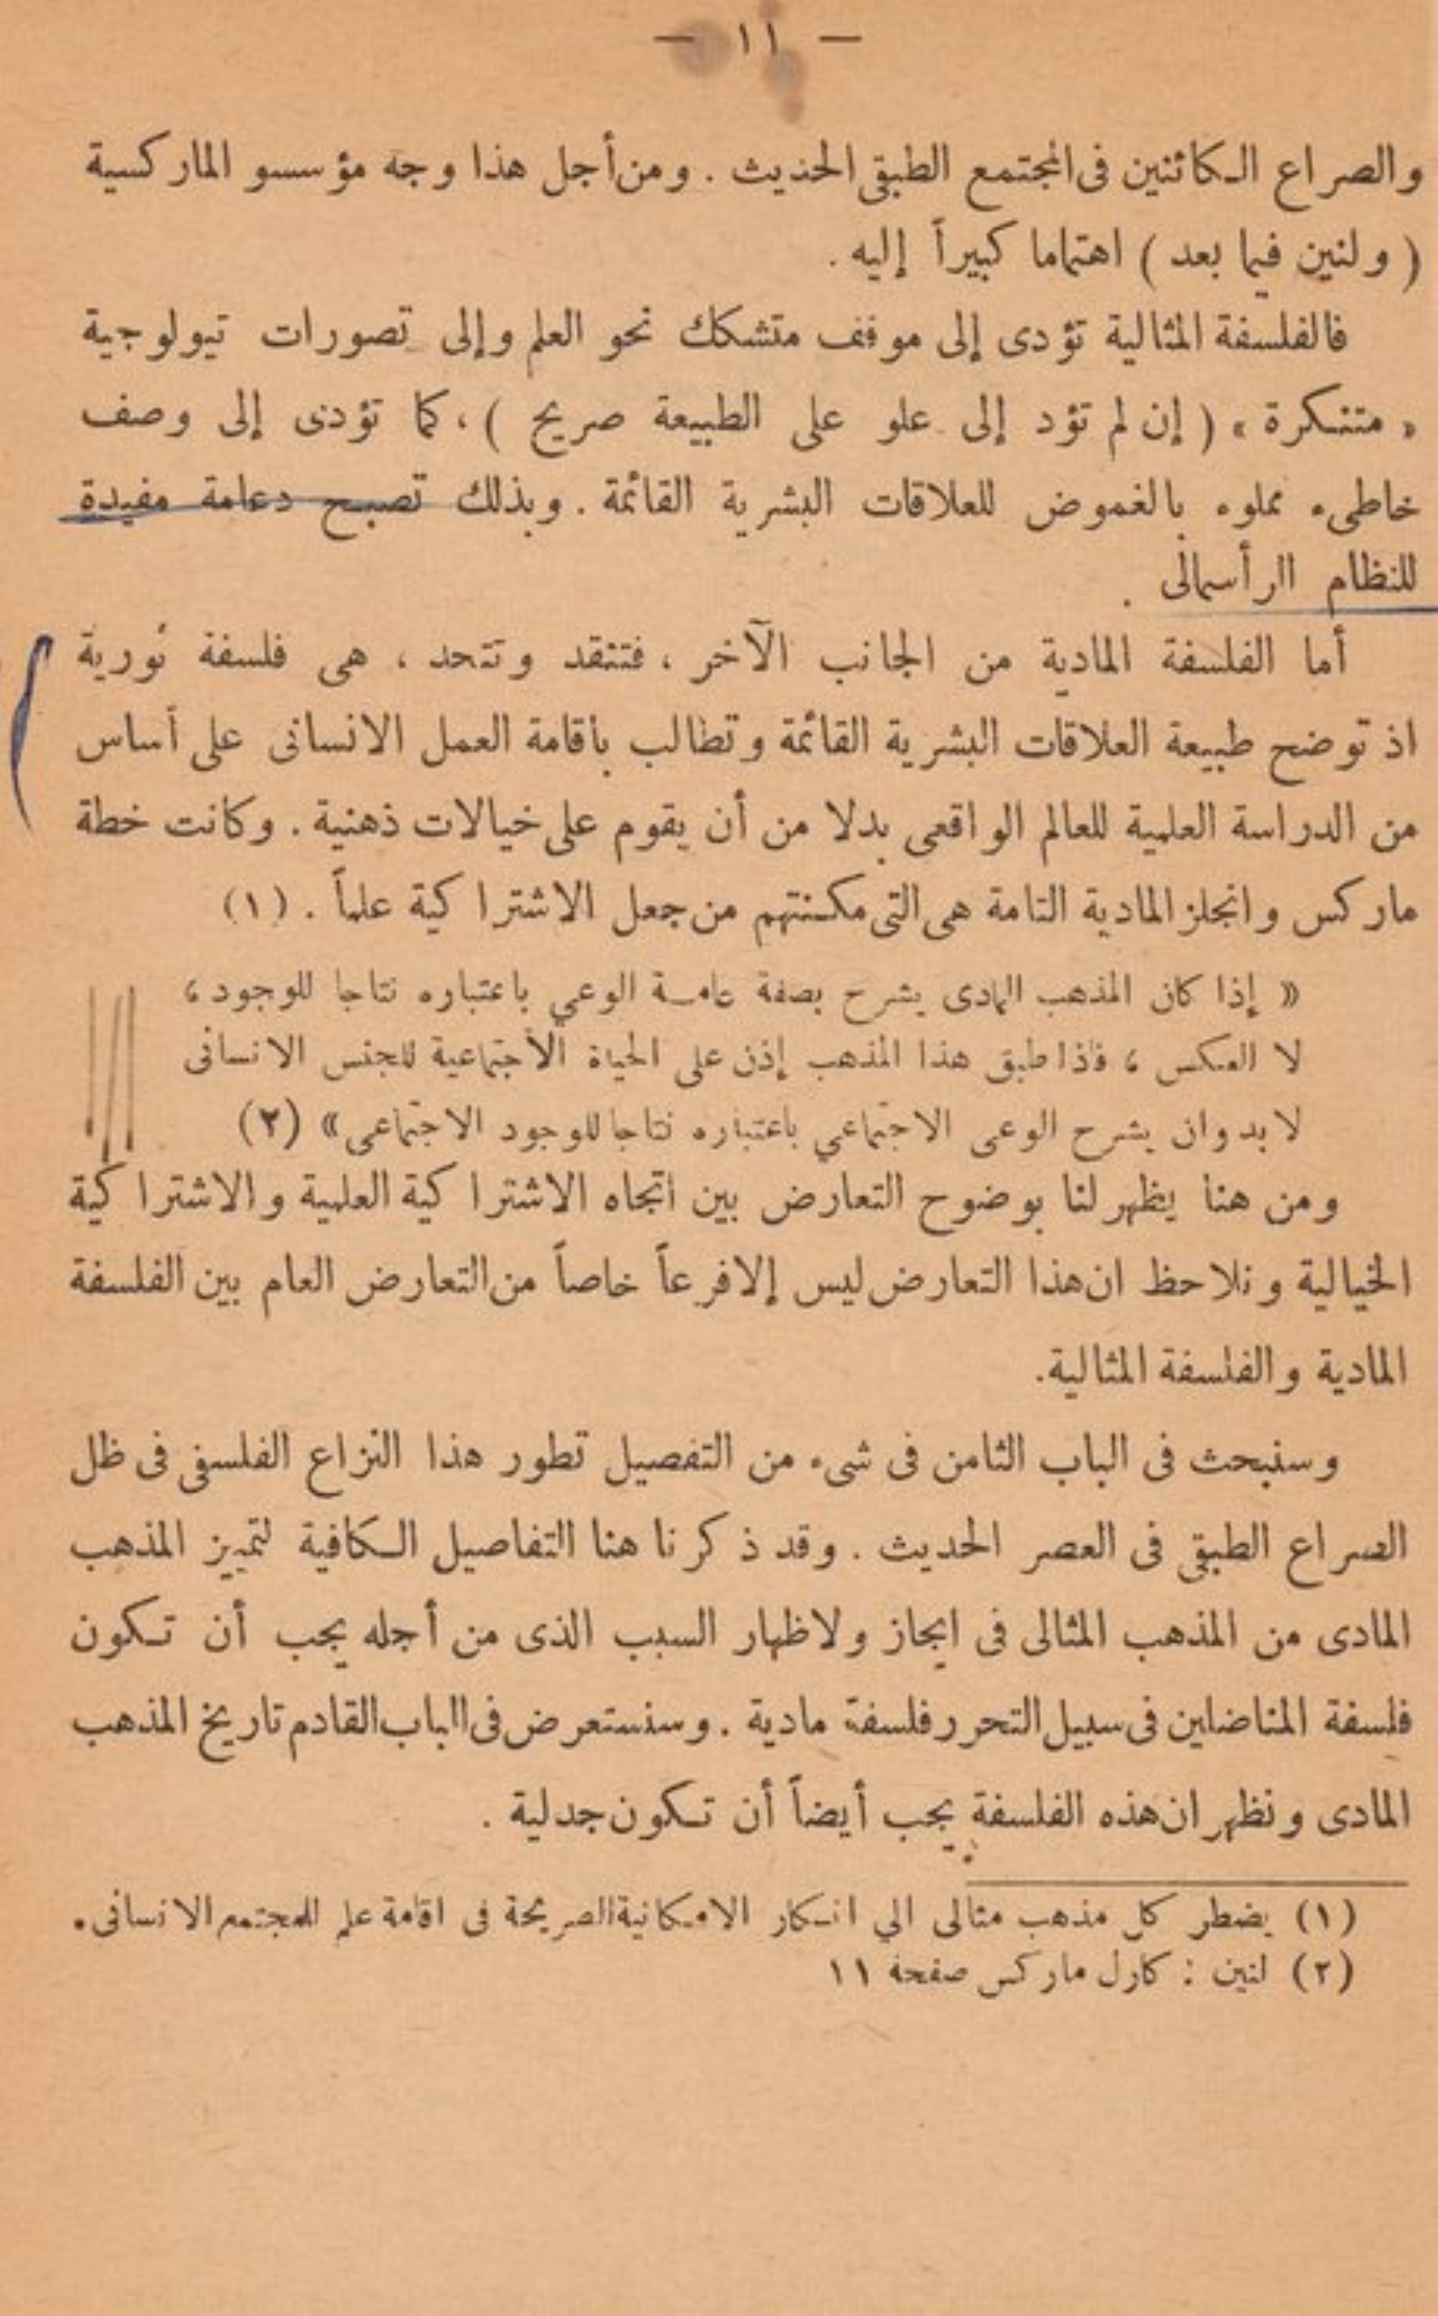 — ١١ —
والصراع الكائنين فى المجتمع الطبقى الحديث . ومن أجل هذا وجه مؤسسو الماركسية
( ولنين فيما بعد ) اهتماما كبيراً إليه .
فالفلسفة المثالية تؤدى إلى موقف متشكك نحو العلم وإلى تصورات تيولوجية
« متنكرة » ( إن لم تؤد إلى علو على الطبيعة صريح ) ، كما تؤدى إلى وصف
خاطىء مملوء بالغموض للعلاقات البشرية القائمة . وبذلك تصبح دعامة مفيدة
للنظام الرأسمالى .
أما الفلسفة المادية من الجانب الآخر ، فتنقد وتتحد ، هى فلسفة ثورية
اذ توضح طبيعة العلاقات البشرية القائمة وتطالب بأقامة العمل الانسانى على أساس
من الدراسة العلمية للعالم الواقعى بدلا من أن يقوم على خيالات ذهنية . وكانت خطة
ماركس وانجلز المادية التامة هى التى مكنتهم من جعل الاشتراكية علماً . (١)
« إذا كان المذهب المادى يشرح بصفة عامة الوعي باعتباره نتاجا للوجود ،
لا العكس ، فأذا طبق هذا المذهب إذن على الحياة الأجتماعية للجنس الانسانى
لا بد وان يشرح الوعى الاجتماعي باعتباره نتاجا للوجود الاجتماعى » (٢)
ومن هنا يظهر لنا بوضوح التعارض بين اتجاه الاشتراكية العلمية والاشتراكية
الخيالية ونلاحظ ان هذا التعارض ليس إلا فرعاً خاصاً من التعارض العام بين الفلسفة
المادية والفلسفة المثالية.
وسنبحث فى الباب الثامن فى شىء من التفصيل تطور هذا النزاع الفلسفى فى ظل
الصراع الطبقى فى العصر الحديث . وقد ذكرنا هنا التفاصيل الكافية لتمييز المذهب
المادى من المذهب المثالى فى ايجاز ولاظهار السبب الذى من أجله يجب أن تكون
فلسفة المناضلين فى سبيل التحرر فلسفة مادية . وسنستعرض فى الباب القادم تاريخ المذهب
المادى ونظهر ان هذه الفلسفة يجب أيضاً أن تكون جدلية .
(١) يضطر كل مذهب مثالى الي انكار الامكانية الصريحة فى اقامة علم للمجتمع الانسانى .
(٢) لنين : كارل ماركس صفحة ١١